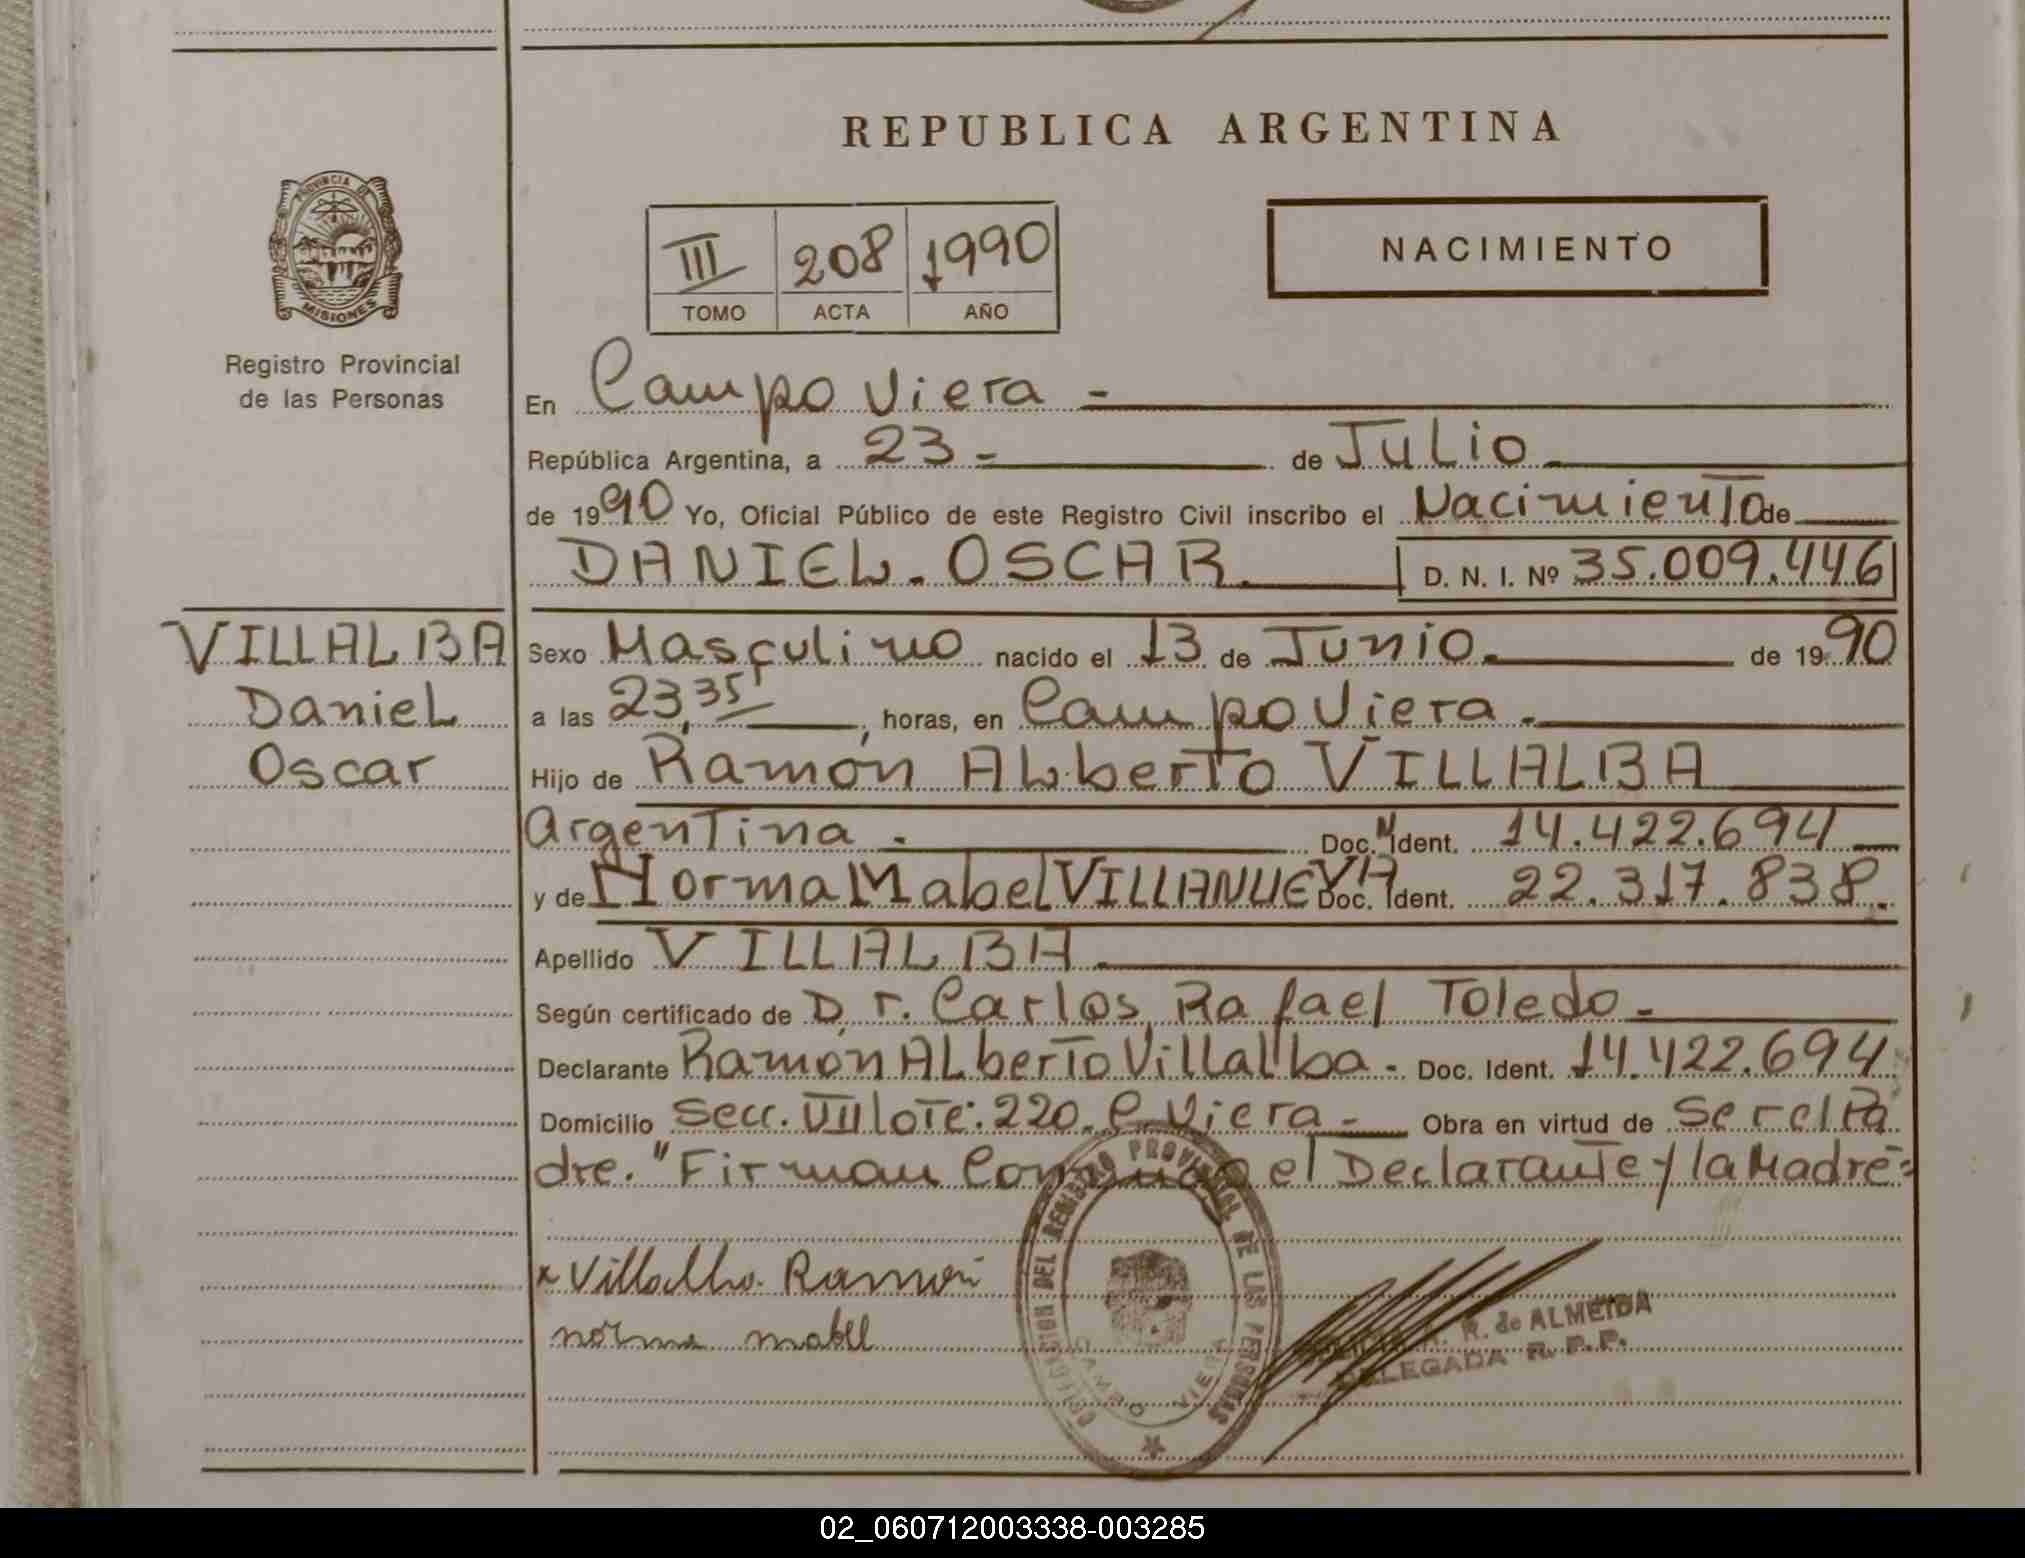 REPUBLICA ARGENTINA
PROVINCIA DE
MISIONES
Registro Provincial
de las Personas
III 208 1990
TOMO ACTA AÑO
NACIMIENTO
En Campo Viera -
República Argentina, a 23 - de Julio
de 1990 Yo, Oficial Público de este Registro Civil inscribo el Nacimiento de
DANIEL. OSCAR. D. N. I. Nº 35.009.446
VILLALBA
Daniel
Oscar
Sexo Masculino nacido el 13 de Junio. de 1990
a las 23,35, horas, en Campo Viera -
Hijo de Ramón Alberto VILLALBA
Argentina - Doc. M Ident. 14.422.694
y de Norma Mabel VILLANUEVA Doc. Ident. 22.317.838.
Apellido VILLALBA
Según certificado de Dr. Carlos Rafael Toledo -
Declarante Ramón Alberto Villalba - Doc. Ident. 14.422.694
Domicilio Secc. VII lote: 220. C. Viera - Obra en virtud de Ser el Pa
dre. "Firman Conmigo el Declarante y la Madre=
x Villalba Ramón
norma mabel
DEL REGISTRO PROVINCIAL DE LAS PERSONAS
CAMPO VIERA
A. R. de ALMEIDA
DELEGADA R. P. P.
02_060712003338-003285